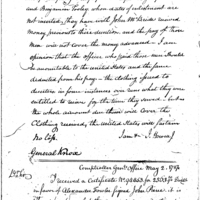 and Benjamin Tooley, when dates of inlistment are
not inserted, They have with John McDevitt received
money previous to their desertion, and the pay of those
Men will not cover the money advanced. I am of
opinion that the officer who paid those men should
be accountable to the United States and the same
deducted from his pay — the Clothing furnd to
deserters in some instances over runs what they were
entitled to receive for the time they served, but on
the whole amount due them will cover the
Clothing received, the United States will sustain
no loss.
I am &c. J. Howell
General Knox
Comptrollers Genl Office May 2, 1787
I received a Certificate No 94863 for dollars
in favor of Alexander Fowler signed John Pierce it is